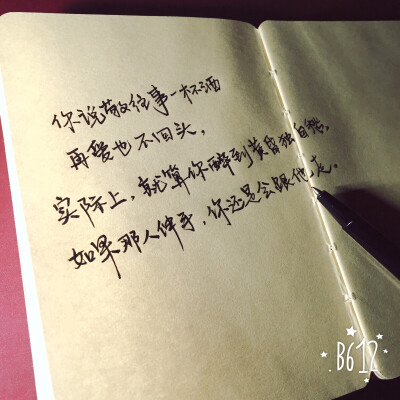 你说敬往事一杯酒
再爱也不回头，
实际上，就算你醉到黄昏独自愁，
如果那人伸手，你还是会跟他走。
B612